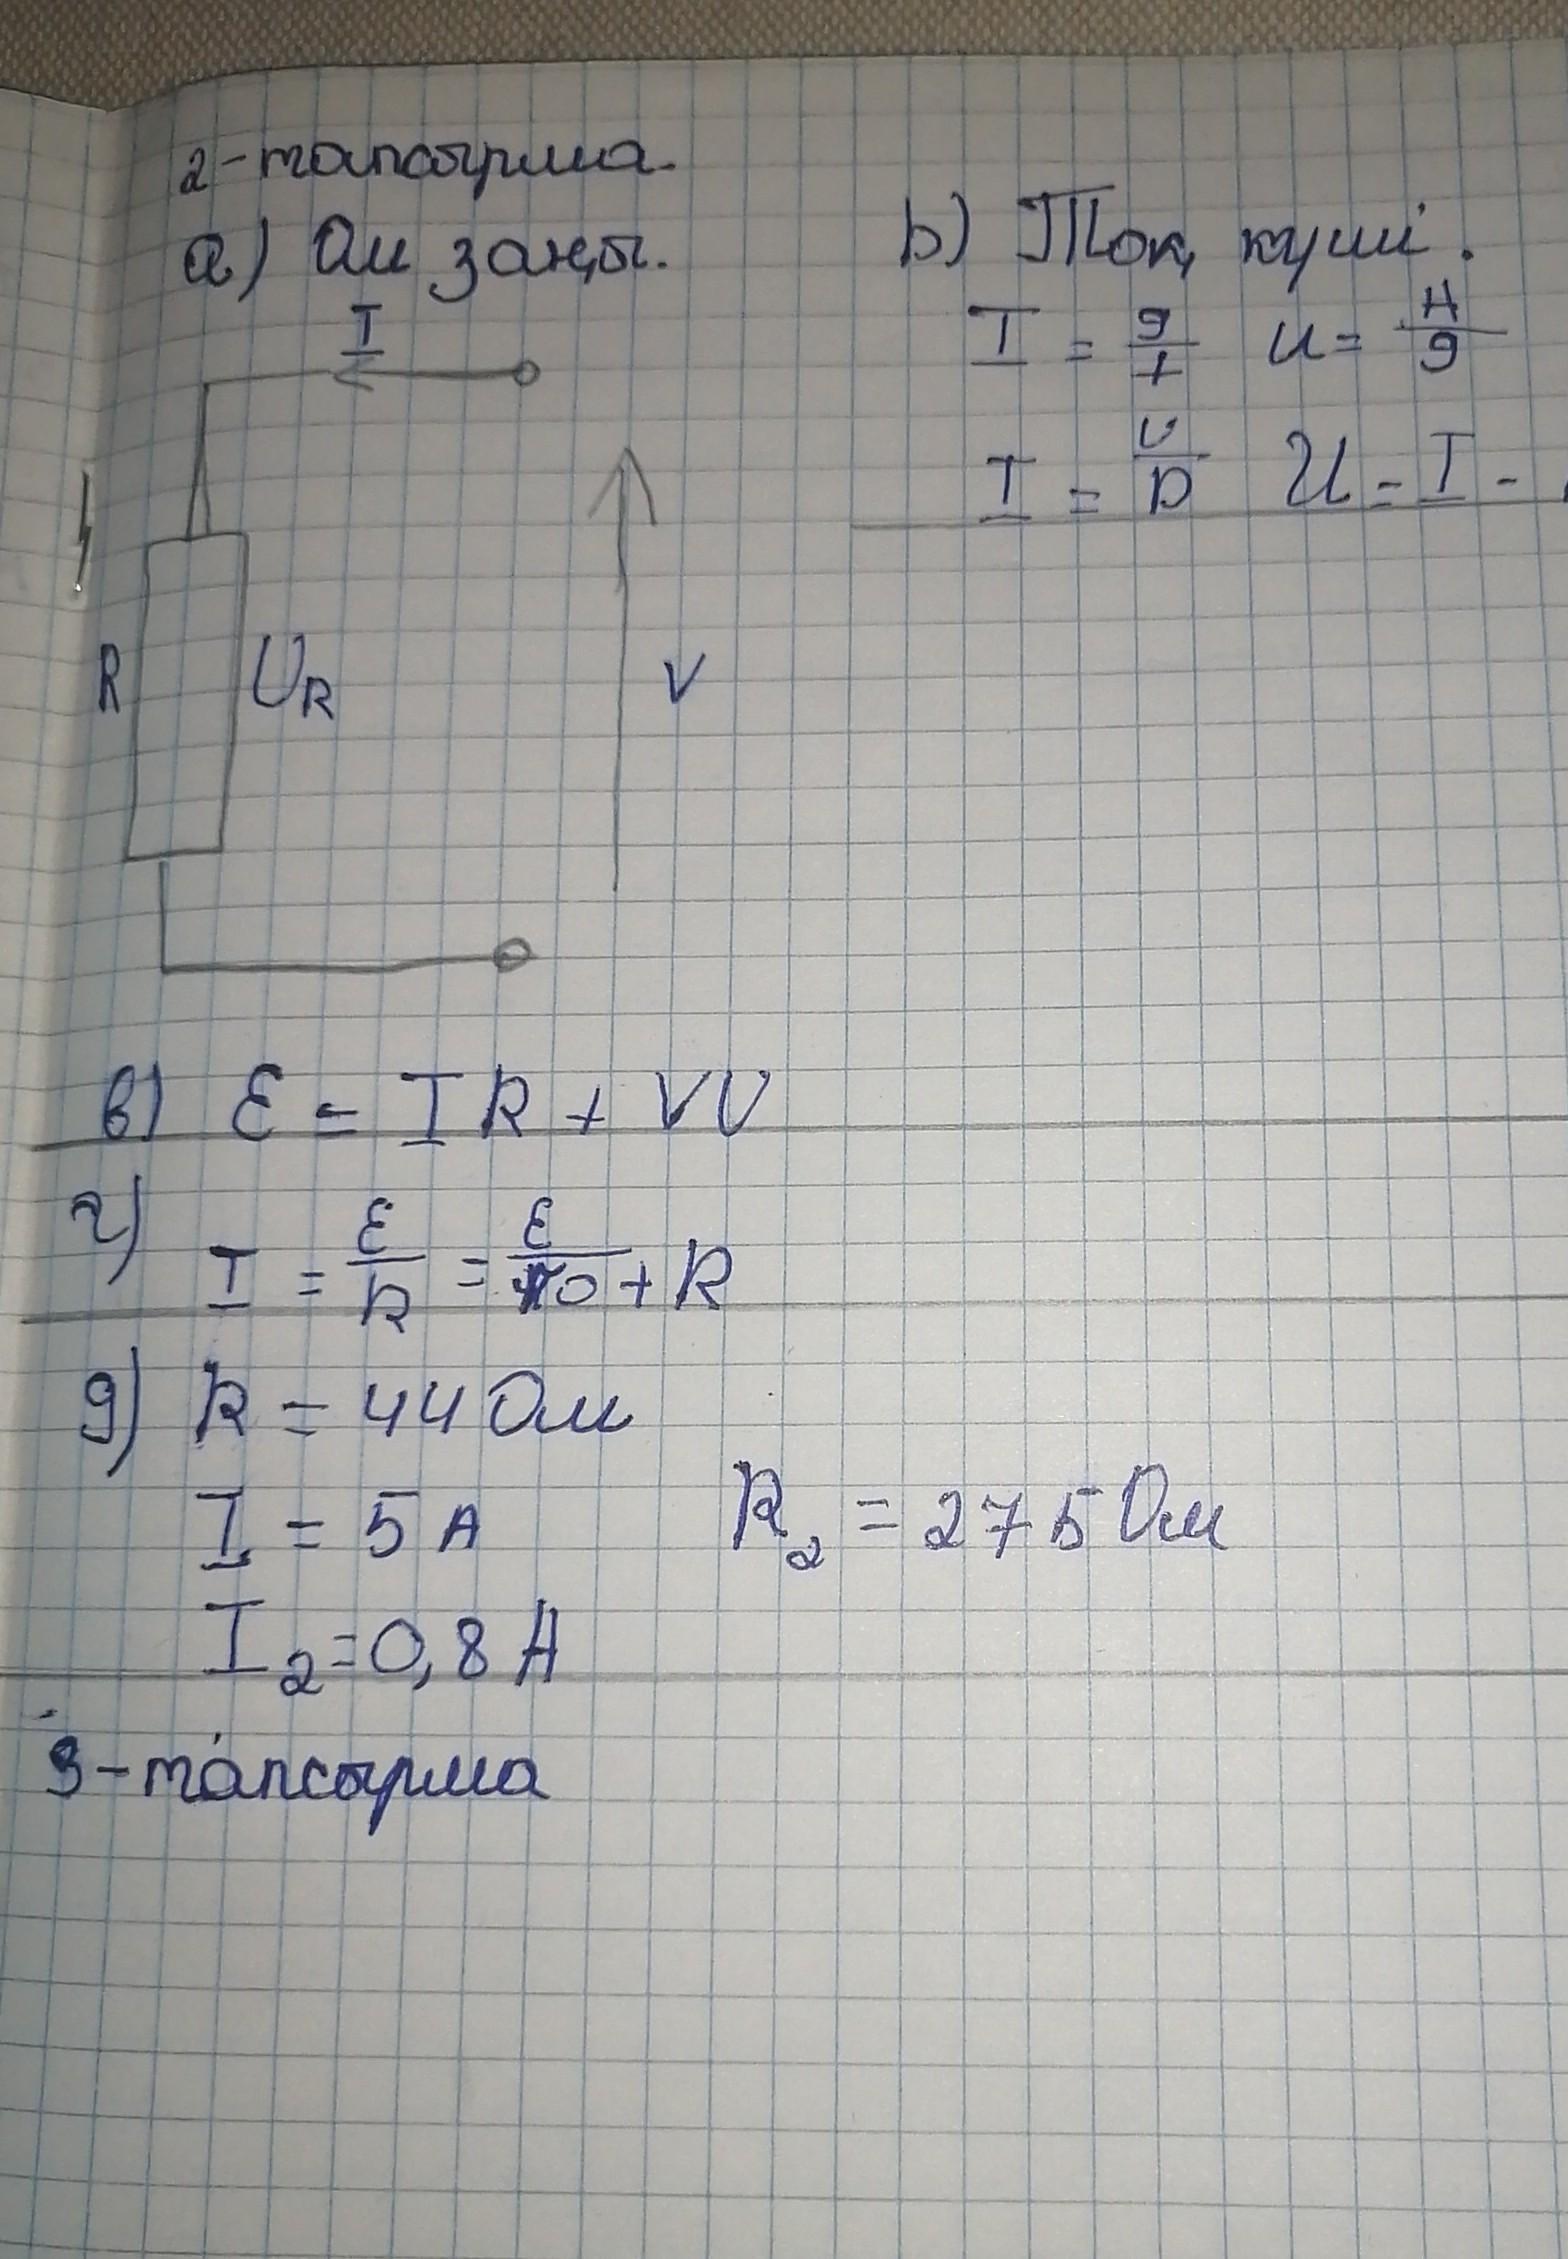 2-тапсырма.
а) Ом заңы.
I
R
UR
V
b) Ток күші.
I = q/t U = A/q
I = U/R U = I -
в) Ɛ = IR + VU
г) I = Ɛ/R = Ɛ/r0 + R
g) R = 44 Ом
I = 5 A
R2 = 275 Ом
I2 = 0,8 A
3-тапсырма